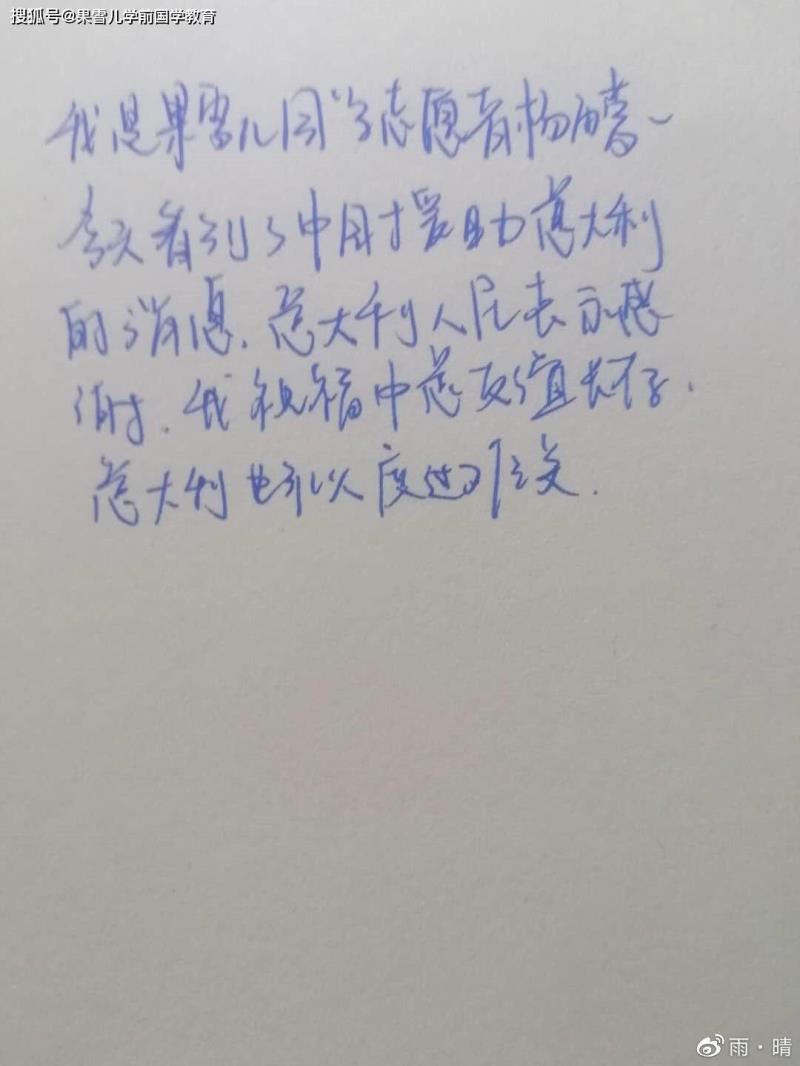 搜狐号@果雪儿学前国学教育
我是果雪儿国学志愿者杨
今天看到了中国援助意大利
的消息，意大利人民表示感
谢，我祝福中意友谊长存，
意大利也可以度过难关.
雨·晴